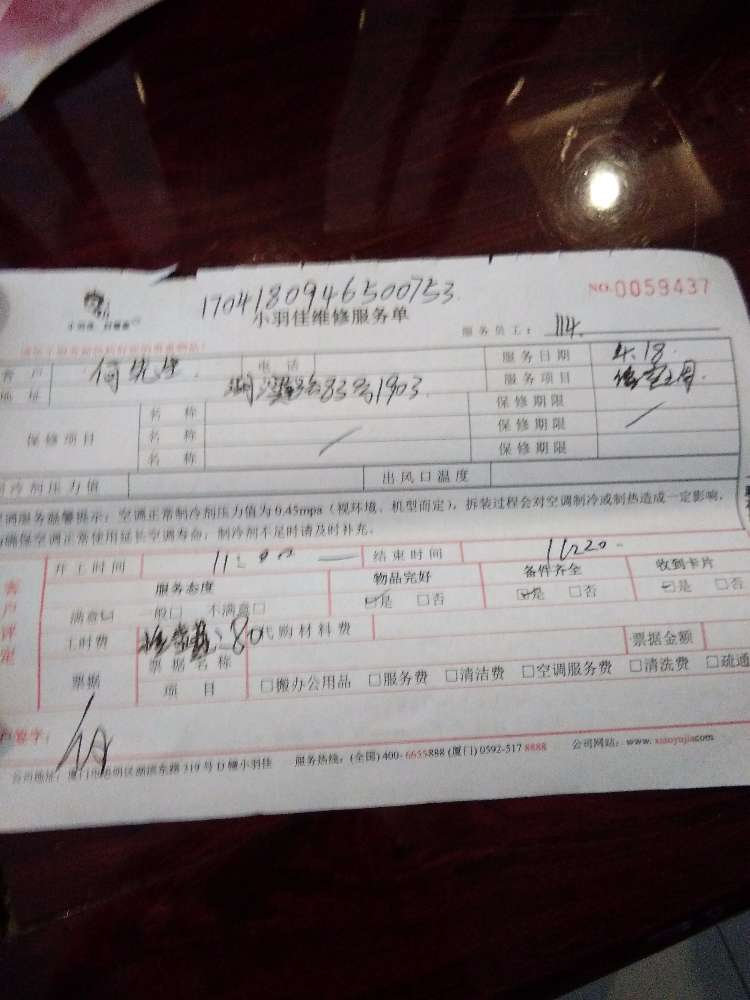 1704180946500753
NO.0059437
小羽佳维修服务单
服务员工： 114.
客户 何先生 电话 服务日期 4.18.
地址 83号1903. 服务项目
保修项目 名称 保修期限
名称 / 保修期限 /
名称 保修期限
制冷剂压力值 出风口温度
空调服务温馨提示：空调正常制冷剂压力值为0.45mpa（视环境、机型而定），拆装过程会对空调制冷或制热造成一定影响，
为确保空调正常使用延长空调寿命，制冷剂不足时请及时补充。
客户评定
开工时间 11:00 — 结束时间 11:20-
服务态度 物品完好 备件齐全 收到卡片
满意☑ 一般□ 不满意□ ☑是 □否 ☑是 □否 ☑是 □否
工时费 :80 代购材料费
票据 票据名称 票据金额
项目 □搬办公用品 □服务费 □清洁费 □空调服务费 □清洗费 □疏通
客户签字： 何
公司地址：厦门市思明区湖滨东路319号D幢小羽佳 服务热线：(全国)400-6655888 (厦门)0592-517 8888 公司网站：www.xiaoyujia.com